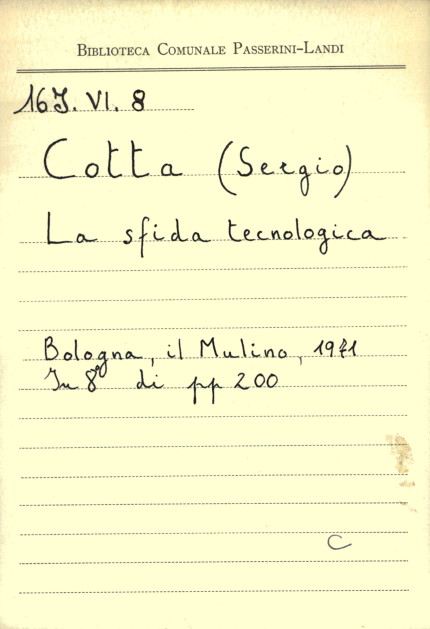 BIBLIOTECA COMUNALE PASSERINI-LANDI
16J. VI. 8
Cotta (Sergio)
La sfida tecnologica
Bologna, il Mulino, 1971
In 8° di pp 200
C